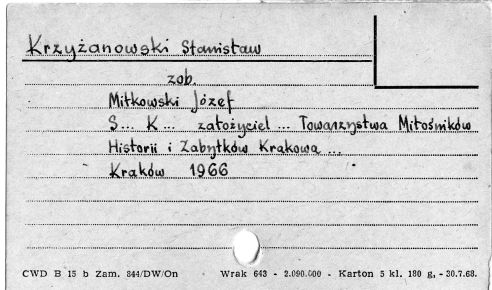 Krzyżanowski Stanisław
zob.
Mitkowski Józef
S... K... założyciel ... Towarzystwa Miłośników
Historii i Zabytków Krakowa ...
Kraków 1966
CWD B 15 b Zam. 344/DW/On Wrak 643 - 2.090.000 - Karton 5 kl. 180 g, - 30.7.68.